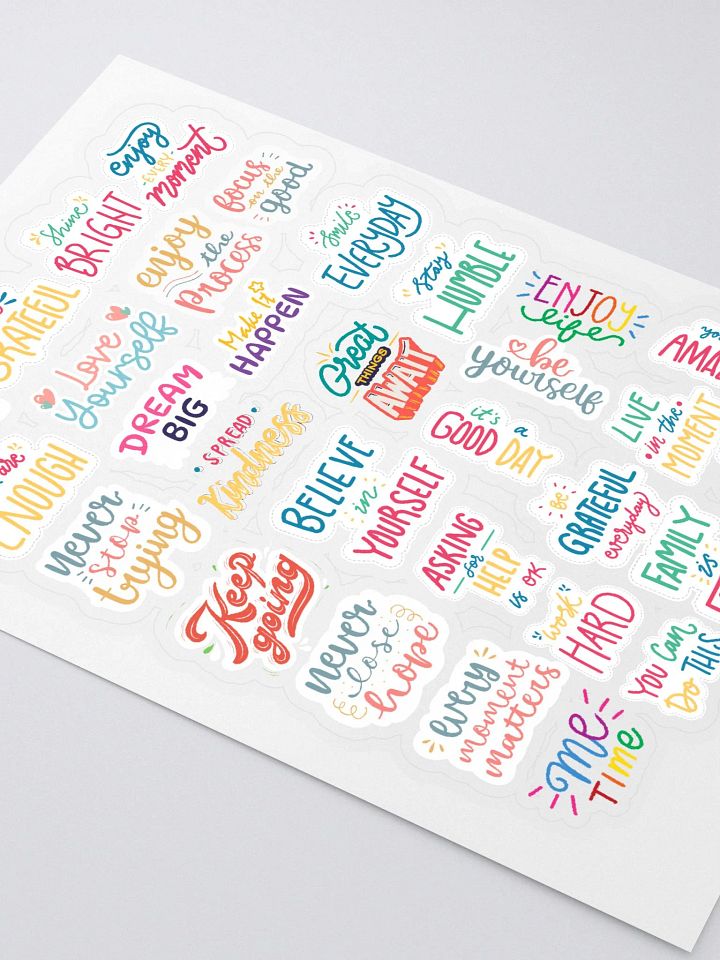 enjoy
EVERY
moment
focus
on the
good
Shine
BRIGHT
enjoy
the
process
Smile
EVERYDAY
Stay
HUMBLE
ENJOY
life
GRATEFUL
Love
Yourself
Make it
HAPPEN
Great
THINGS
AWAIT
be
yourself
LIVE
in the
MOMENT
DREAM
BIG
SPREAD
Kindness
it's a
GOOD DAY
are
ENOUGH
BELIEVE
in
YOURSELF
BE
GRATEFUL
everyday
never
stop
trying
ASKING
for
HELP
is OK
FAMILY
is
Keep
going
never
lose
hope
work
HARD
YOU CAN
Do THIS
every
moment
matters
ME
TIME